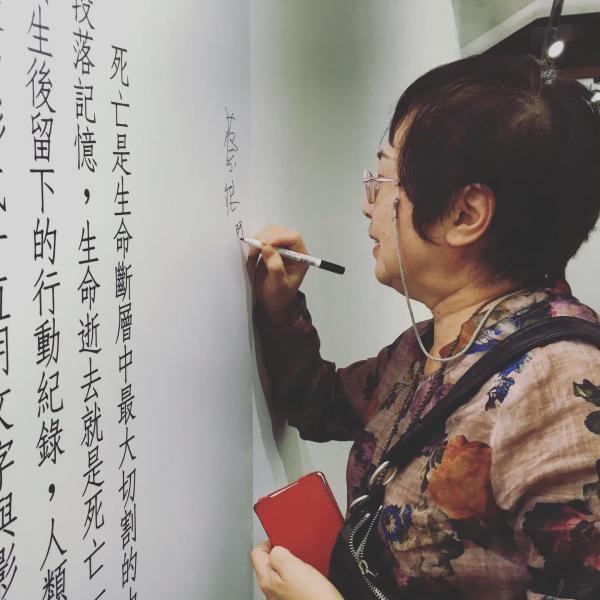 死亡是生命斷層中最大切割的
段落記憶，生命逝去就是死亡
生後留下的行動紀錄，人類
直用文字與影